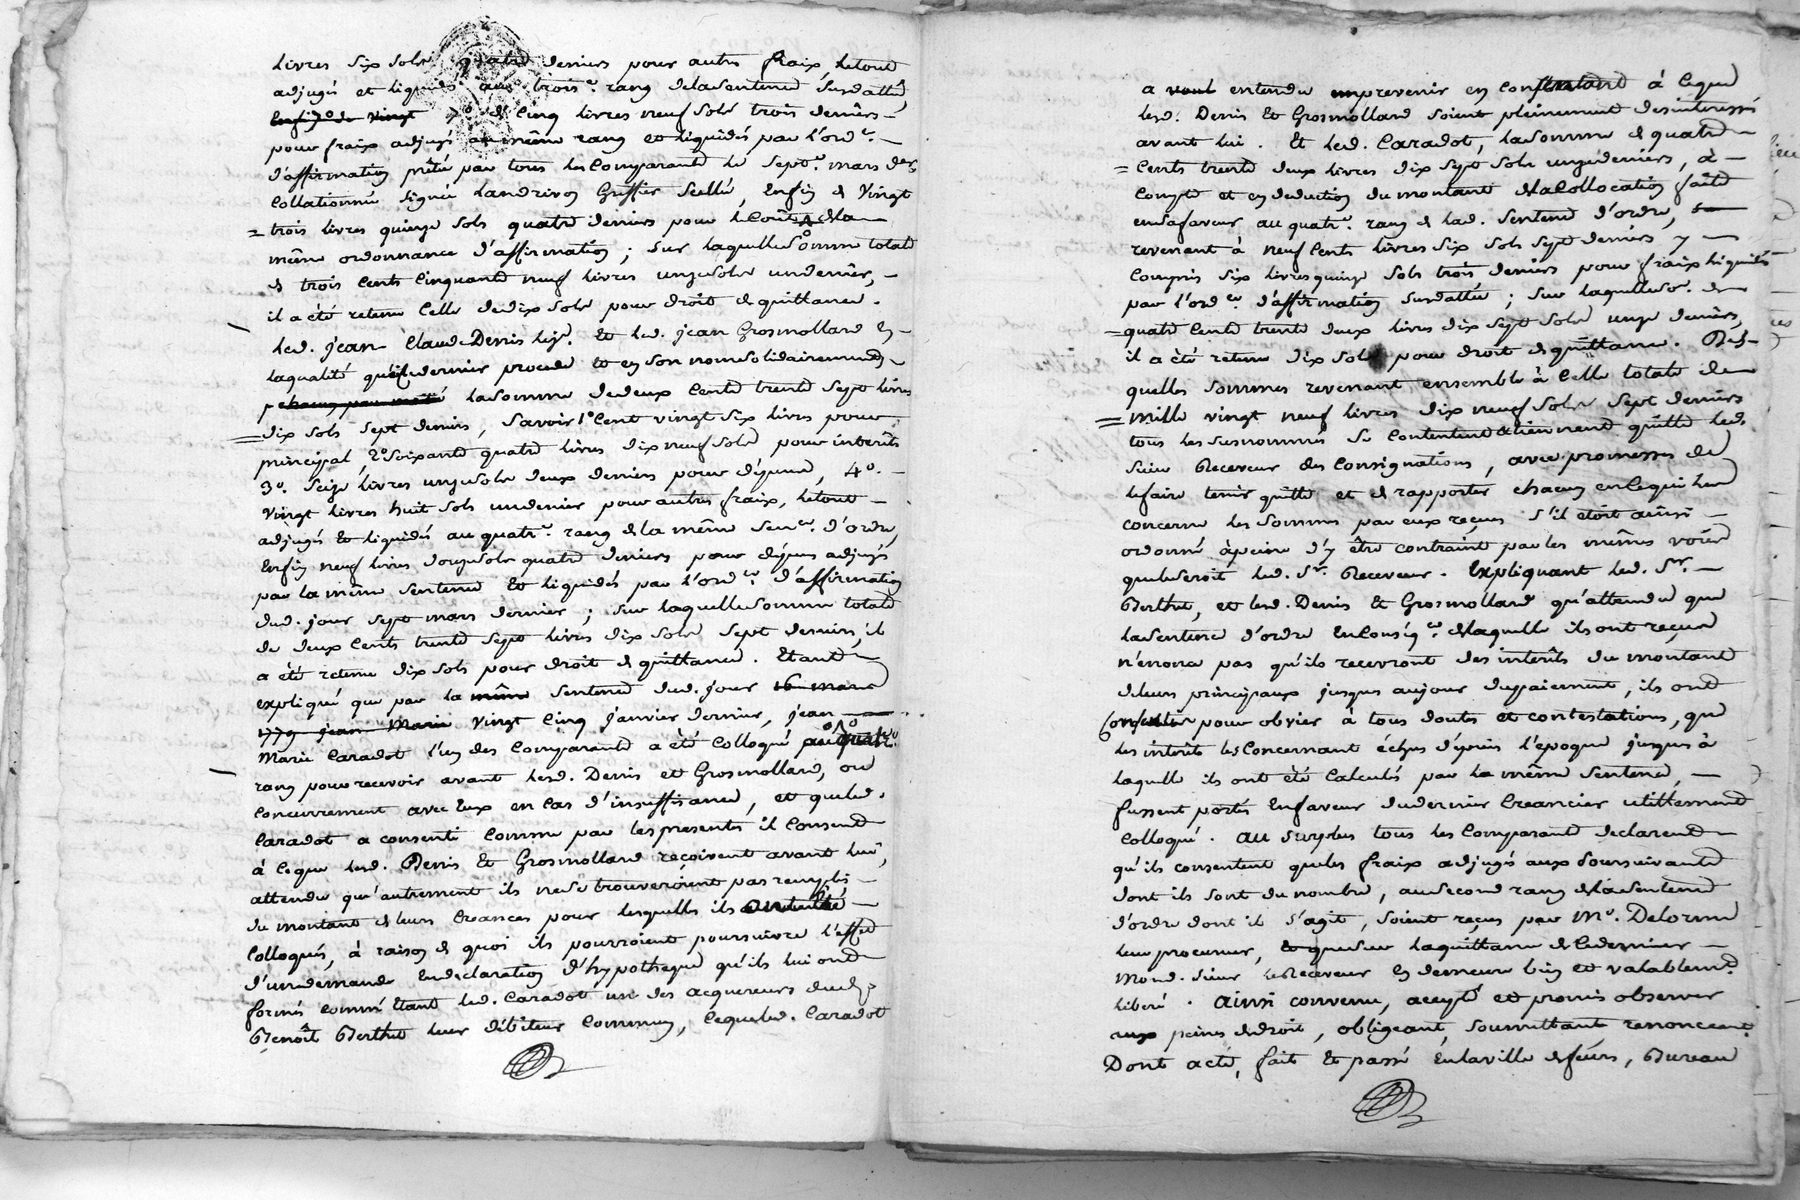 livres six sols quatre deniers pour autres fraix, letout
adjugés et liquidés au trois.e rang delasentence susdattée,
de cinq livres neuf sols trois deniers
pour fraix adjugés au même rang et liquidés par l'ord.ce
d'affirmation prêtée par tous les comparants le sept.e mars der.
collationné signée Landrivon Greffier scellé, enfin de vingt
trois livres quinze sols quatre deniers pour le Coût dela
même ordonnance d'affirmation; sur laquellesomme totale
de trois cents cinquante neuf livres onze sols undenier,
il a été retenu celle dedix sols pour droit de quittance.
Led. jean Claude Denis et led. jean Grosmolland en
laqualité qu'icedernier procede et en son nom solidairement
lasomme dedeux cents trente sept livres
dix sols sept deniers, Savoir 1.o cent vingt six livres pour
principal 2.o soixante quatre livres dix neuf sols pour interêts
3.o seize livres onze sols deux deniers pour dépens, 4.o
vingt livres huit sols undenier pour autres fraix, letout
adjugés et liquidés au quatr.e rang de la même sen.ce d'ordre,
Enfin neuf livres douze sols quatre deniers pour dépens adjugés
par la même sentence et liquidés par l'ord.ce d'affirmation
dud. jour sept mars dernier; sur laquellesomme totale
de deux cents trente sept livres dix sols sept deniers, il
a été retenu dix sols pour droit de quittance. Etant
expliqué que par la même sentence dud. jour 16 mars
1779 jean Marie vingt cinq janvier dernier, jean
Marie Caradot l'un des comparants a été colloqué au quatr.e
rang pour recevoir avant lesd. Denis et Grosmolland, ou
concurremment avec eux en cas d'insuffisance, et queled.
Caradot a consenti comme par lespresentes il consent
à ceque lesd. Denis et Grosmolland reçoivent avant lui,
attendu qu'autrement ils nese trouveroient pas remplis
du montant deleurs creances pour lesquelles ils ont été
colloqués, à raison de quoi ils pourroient poursuivre l'effet
d'unedemande endeclaration d'hypotheque qu'ils lui ont
formée comme Etant led. Caradot un des acquereurs dud.
Benoît Berthet leur débiteur commun, ceque led. Caradot
a voul entendu prevenir en consentant à ceque
lesd. Denis et Grosmolland soient pleinement desinteressés
avant lui. Et led. Caradot, lasomme de quatre
cents trente deux livres dix sept sols onze deniers, à
compte et en deduction du montant delacollocation faite
ensafaveur au quatr.e rang de lad. sentence d'ordre,
revenant à neuf cents livres six sols sept deniers y
compris six livres quinze sols trois deniers pour fraix liquidés
par l'ord.ce d'affirmation susdattée; sur laquelleso.e de
quatre cents trente deux livres dix sept sols onze deniers,
il a été retenu dix sols pour droit de quittance. Les
quelles sommes revenant ensemble à celle totale de
mille vingt neuf livres dix neuf sols sept deniers
tous les susnommés se contentent & tiennent quitte led.
sieur Receveur des consignations, avec promesses de
lefaire tenir quitte et de rapporter chacun en cequi les
concerne les sommes par eux reçues s'il étoit ainsi
ordonné àpeine d'y être contraint par les mêmes voies
queleseroit led. S.r Receveur. Expliquant led. S.r
Berthet, et lesd. Denis et Grosmolland qu'attendu que
lasentence d'ordre Enconséq.ce delaquelle ils ont reçus
n'enonce pas qu'ils recevront des interêts du montant
deleurs principaux jusques aujour dupaiement, ils ont
Consenti pour obvier à tous doutes et contestations, que
les interêts les concernant échus depuis l'époque jusques à
laquelle ils ont été calculés par la même sentence,
fussent portés enfaveur dudernier creancier utillement
colloqué. au surplus tous les comparants declarent
qu'ils consentent queles fraix adjugés aux poursuivants
dont ils sont du nombre, ausecond rang delasentence
d'ordre dont il s'agit, soient reçus par M.e Delorme
leur procureur, et quesur laquittance de cedernier
mond. sieur leReceveur en demeure bien et valablem.t
liberé. Ainsi convenu, accepté et promis observer
aux peines dedroit, obligeant, soumettant, renonceant.
Dont acte, fait et passé Enlaville de feurs, Bureau